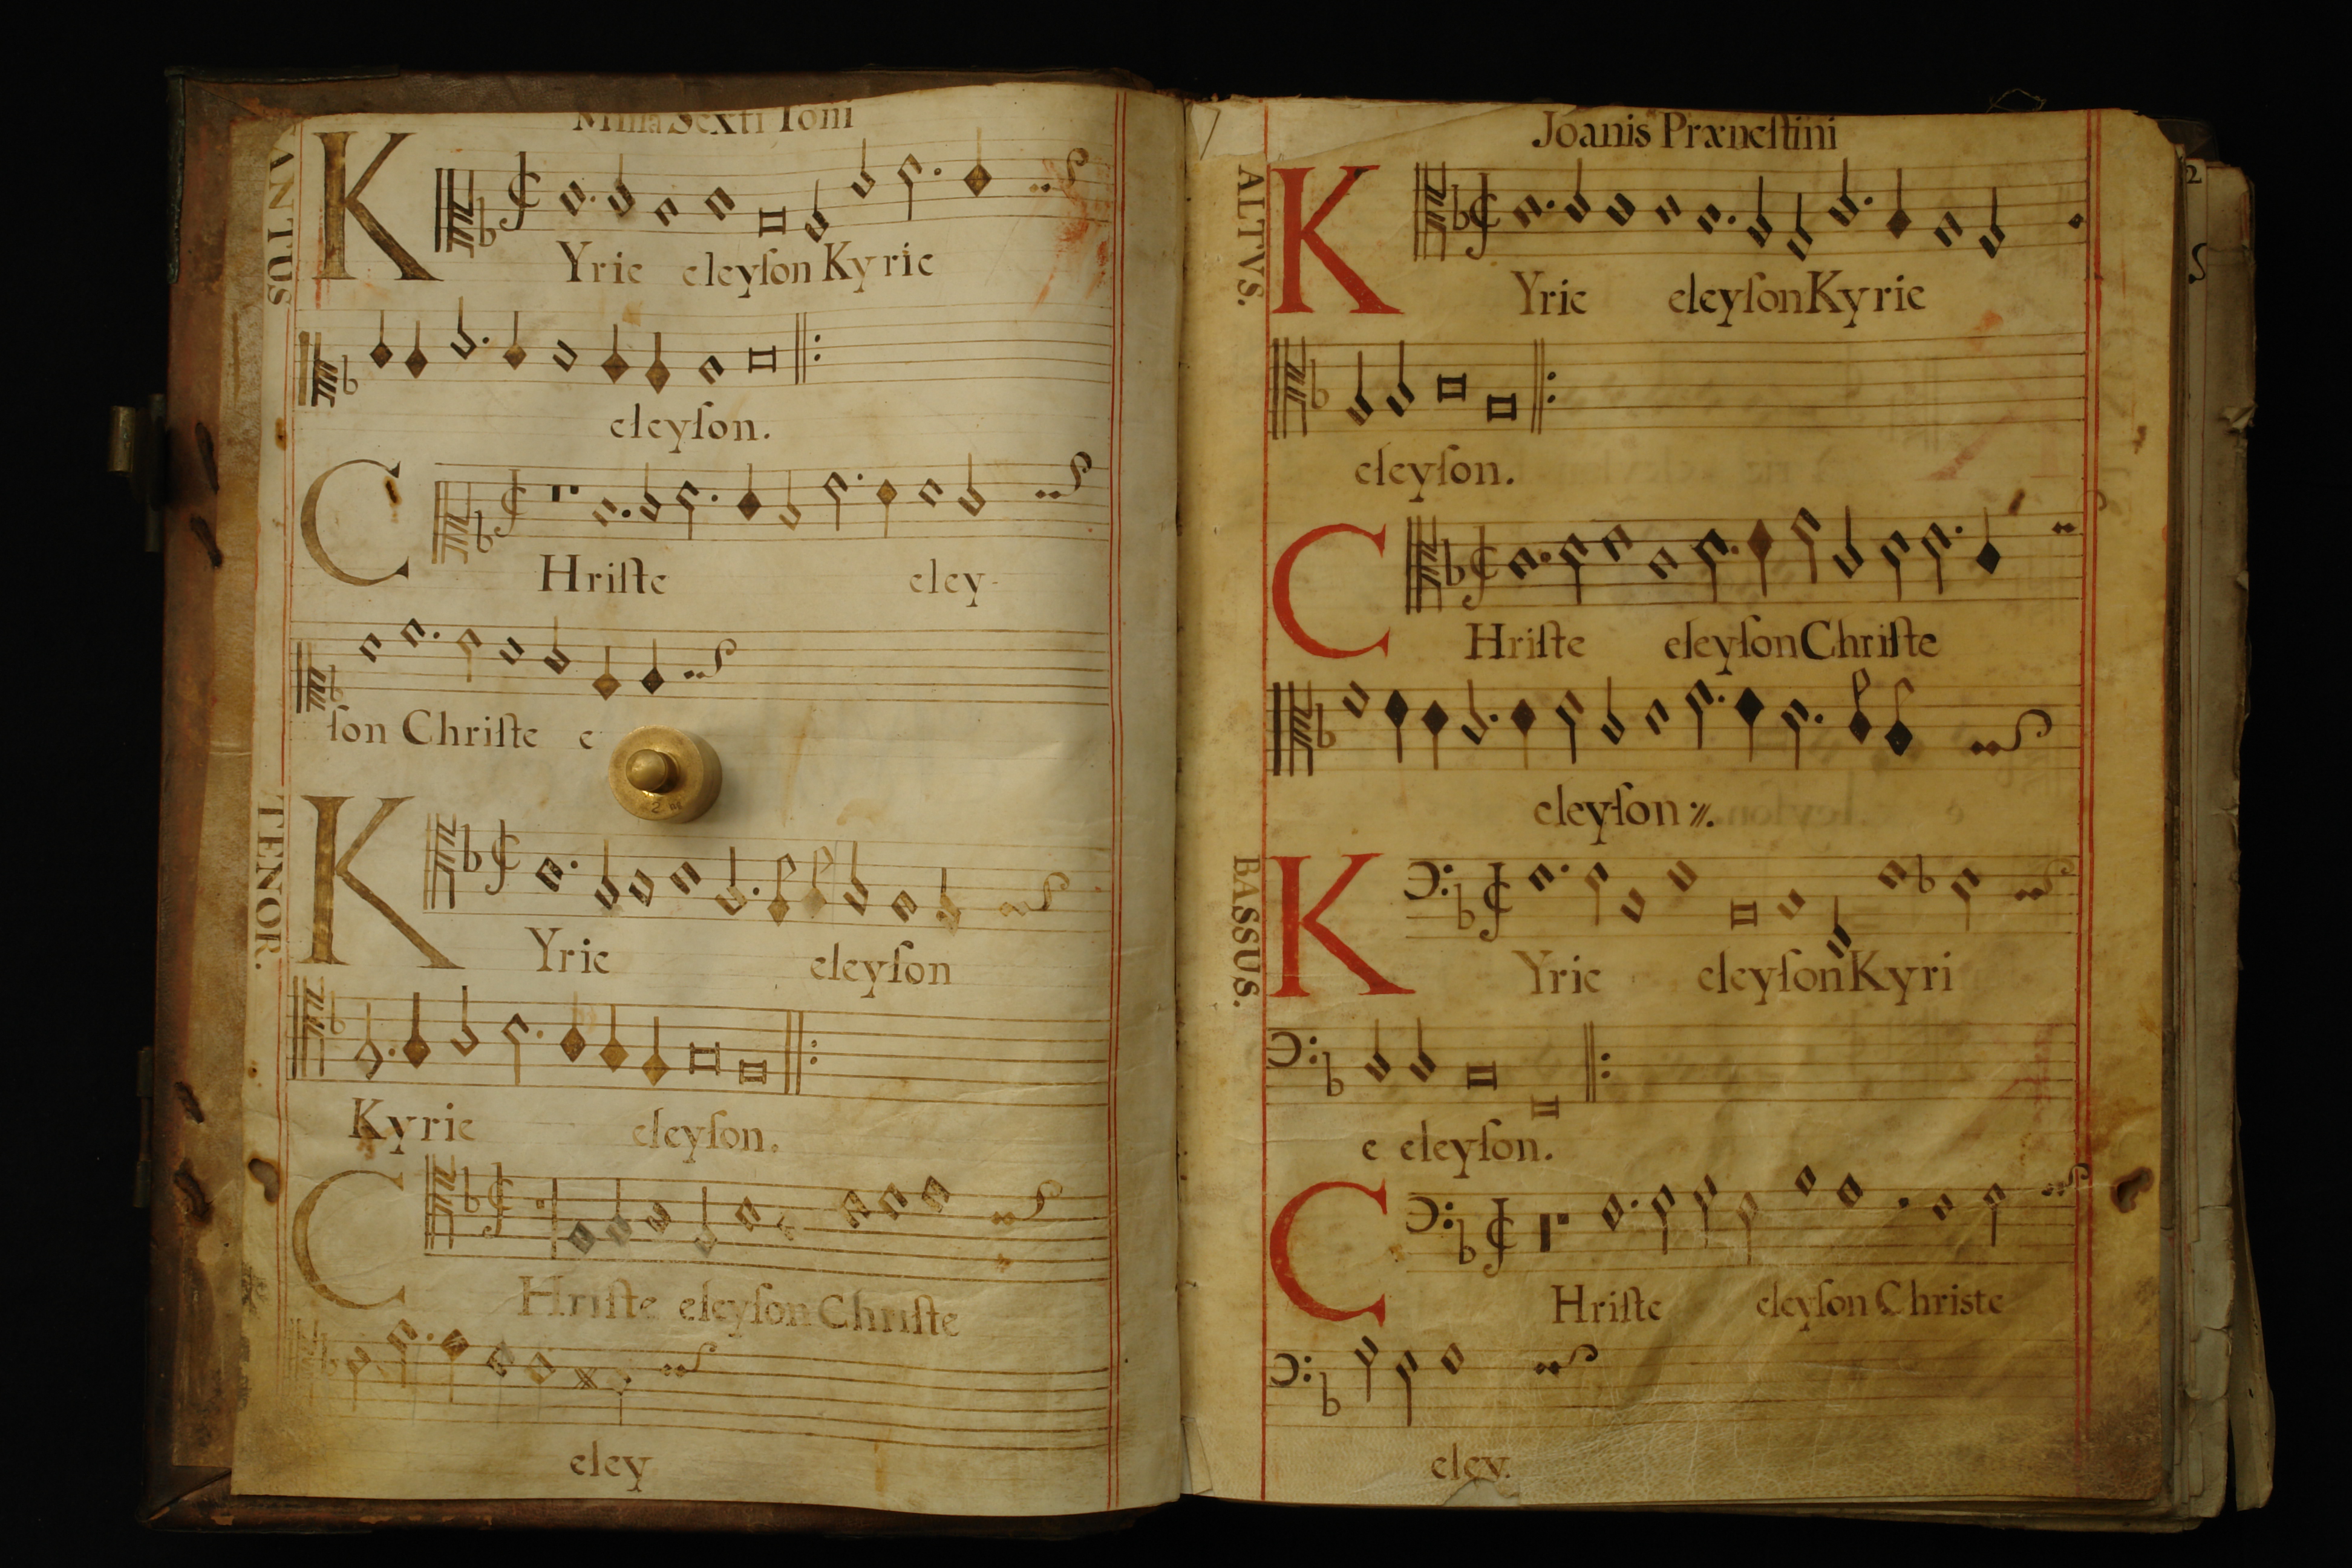 Missa Sexti Toni
CANTUS
KYrie eleyſon Kyrie
eleyſon.
CHriſte eley-
ſon Chriſte e
TENOR.
KYrie eleyſon
Kyrie eleyſon.
CHriſte eleyſon Chriſte
eley
Joanis Præneſtini
ALTVS.
KYrie eleyſon Kyrie
eleyſon.
CHriſte eleyſon Chriſte
eleyſon
BASSUS.
KYrie eleyſon Kyri
e eleyſon.
CHriſte eleyſon Christe
eley.
2